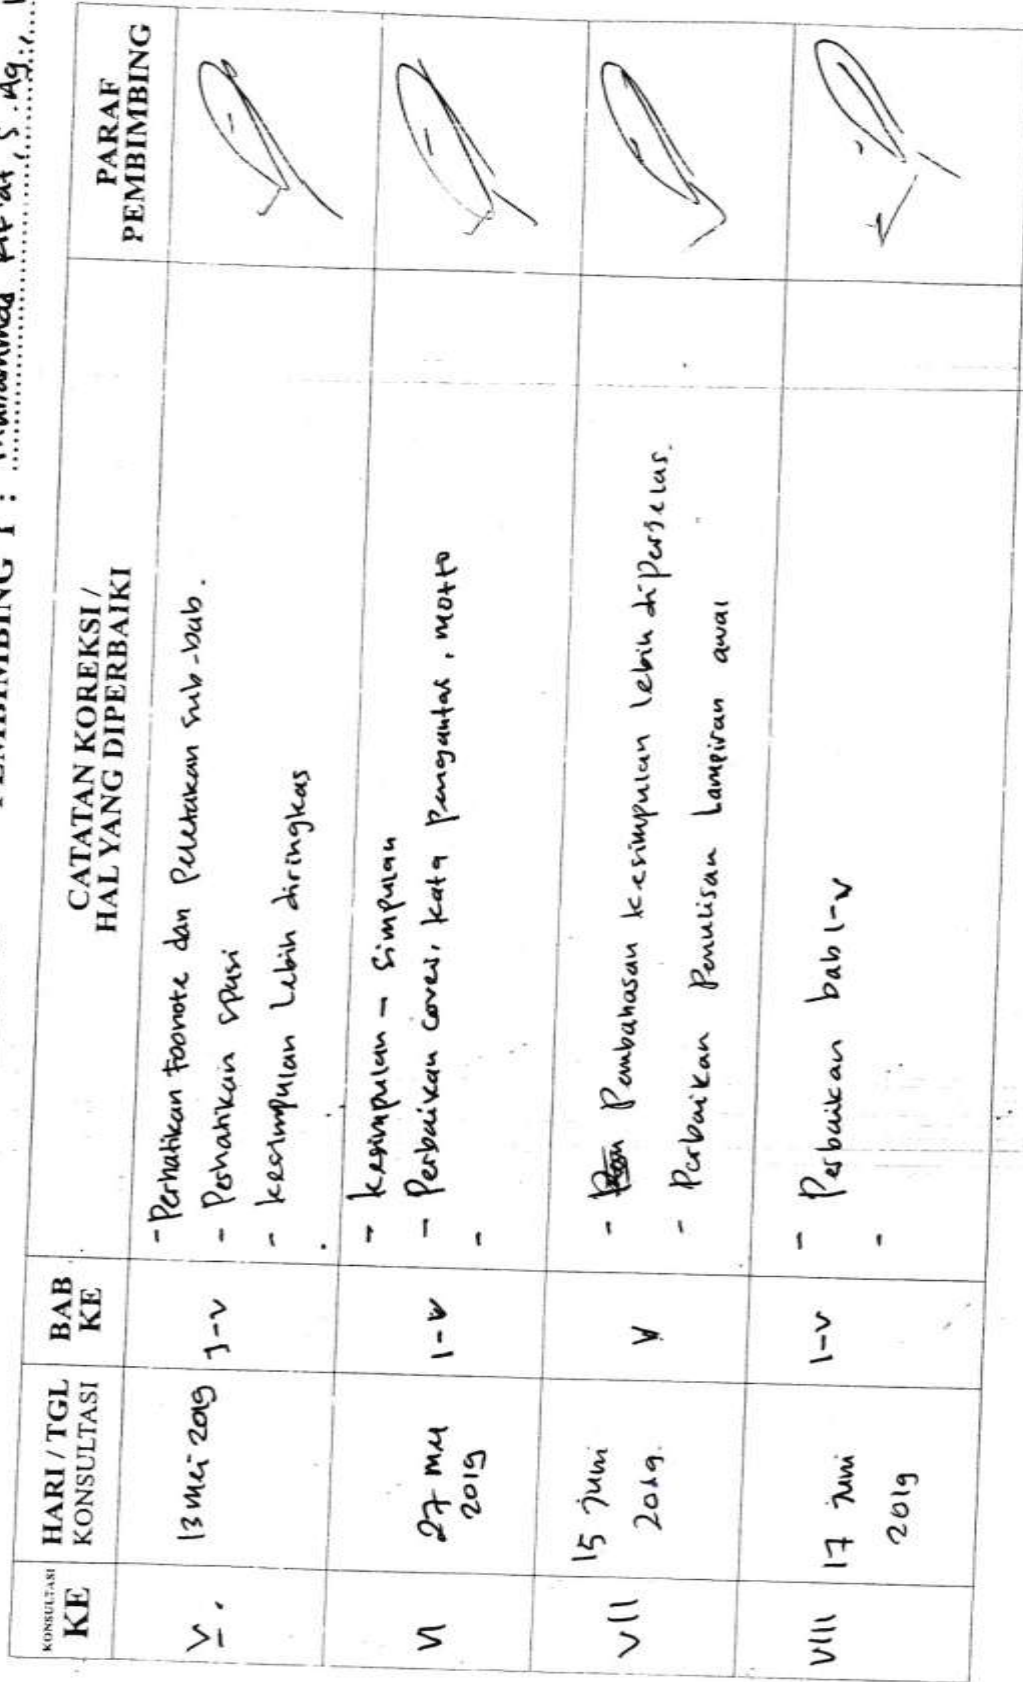 PEMBIMBING I : Muhammad
S.Ag
KONSULTASI
KE
HARI / TGL
KONSULTASI
BAB
KE
CATATAN KOREKSI /
HAL YANG DIPERBAIKI
PARAF
PEMBIMBING
V.
13 Mei 2019
I-V
- Perhatikan Foonote dan Peletakan sub-bab.
- Perhatikan spasi
- kesimpulan Lebih diringkas
VI
27 Mei
2019
I-V
- kesimpulan - Simpulan
- Perbaikan Cover, kata pengantar, motto
-
VII
15 Juni
2019.
V
- Pembahasan kesimpulan lebih diperjelas.
- Perbaikan Penulisan Lampiran awal
VIII
17 Juni
2019
I-V
- Perbaikan bab I-V
-